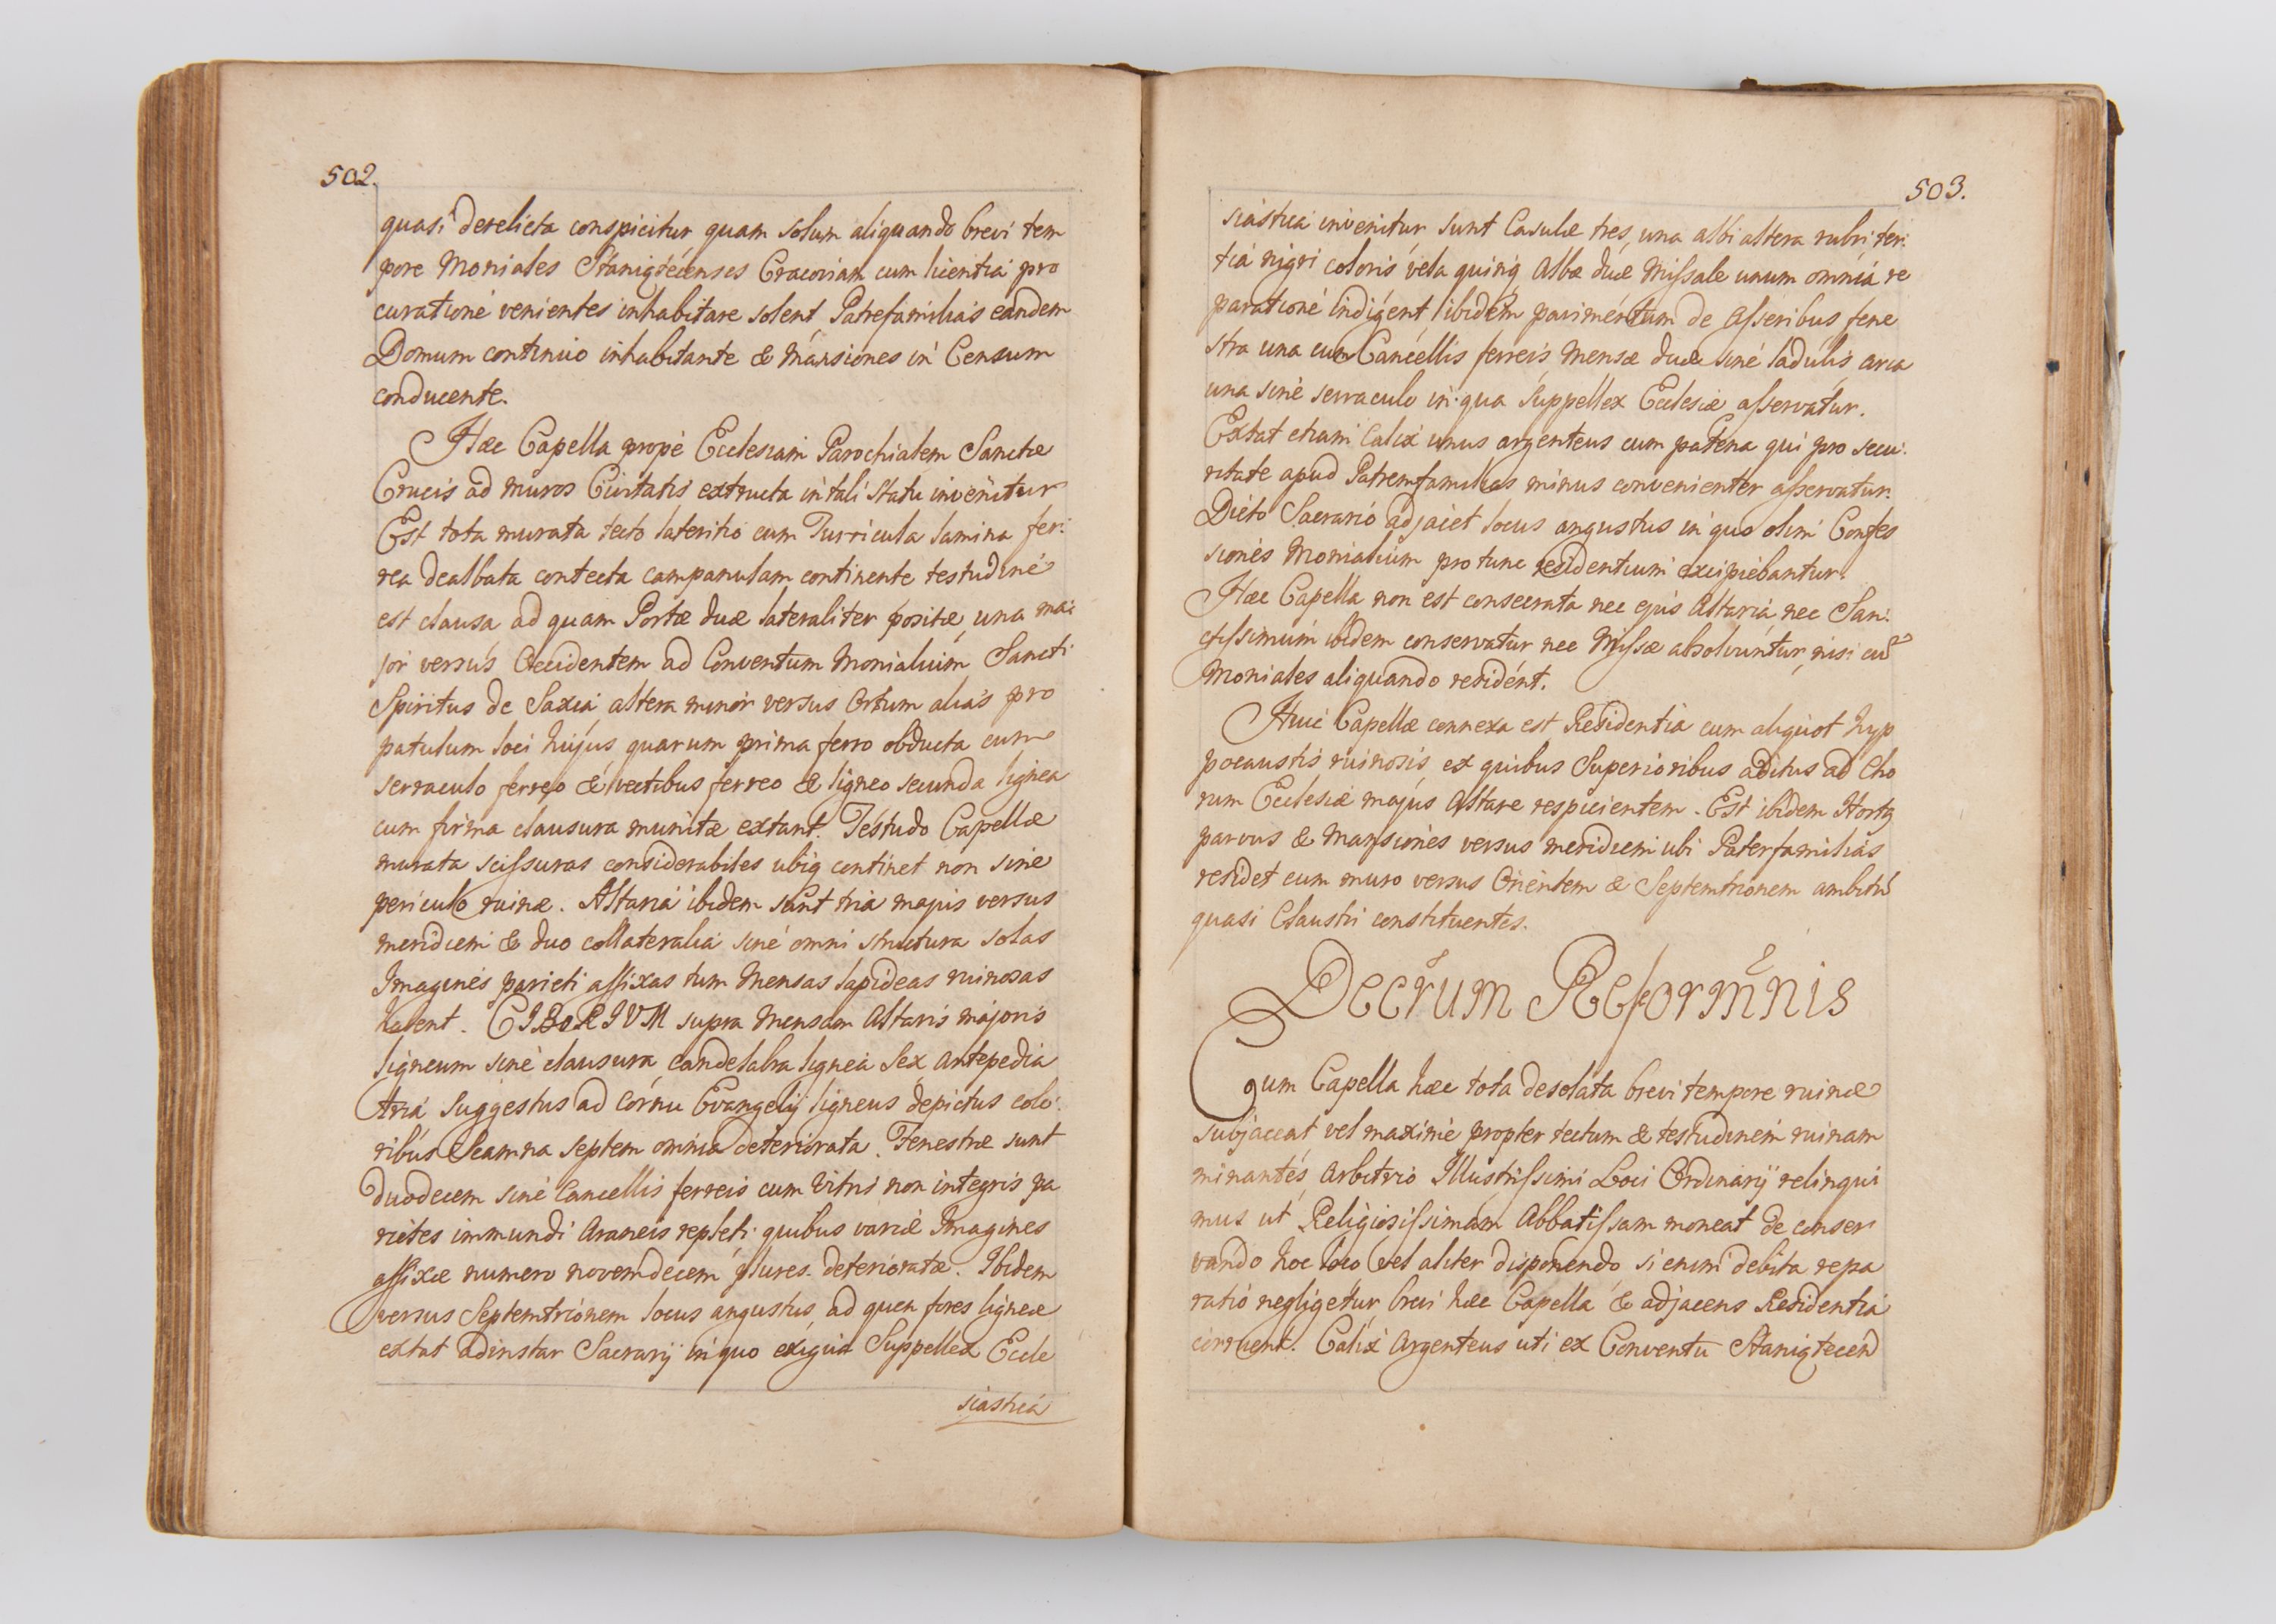 502.
quasi derelicta conspicitur quam solum aliquando brevi tem
pore Moniales Staniqtecenses Cracoviam cum licentia pro
curatione venientes inhabitare solent Patrefamilias eandem
Domum continuo inhabitante & Mansiones in Censum
conducente.
Hæc Capella prope Ecclesiam Parochialem Sanctæ
Crucis ad muros Civitatis extructa in tali statu invenitur
Est tota murata tecto lateritio cum Turricula lamina fer:
rea dealbata contecta campanulam continente testudine
est clausa ad quam Portæ duæ lateraliter positæ, una ma:
jor versus Occidentem ad Conventum Monialium Sancti
Spiritus de Saxia altera minor versus Ortum alias pro
patulum loci hujus quarum prima ferro obducta cum
serraculo ferreo & vectibus ferreo & ligneo secunda lignea
cum firma clausura munitæ extant. Testudo Capellæ
murata scissuras considerabiles ubiq continet non sine
periculo ruinæ. Altaria ibidem sunt tria majus versus
meridiem & duo collateralia sine omni structura solas
Imagines parieti affixas tum Mensas lapideas ruinosas
havent. CIBORIVM supra Mensam Altaris majoris
ligneum sine clausura candelabra lignea sex Antepedia
tria Suggestus ad Cornu Evangelij ligneus depictus colo:
ribus Scamna septem omnia deteriorata. Fenestræ sunt
duodecem sine Cancellis ferreis cum Vitris non integris pa
rietes immundi Araneis repleti quibus variæ Imagines
affixæ numero novemdecem plures deterioratæ. Ibidem
versus Septemtrionem locus angustus, ad quem fores ligneæ
extat adinstar Sacrarij in quo exigua Suppellex Eccle
siastica
503.
siastica invenitur sunt Casulæ tres, una albi altera rubri ter:
tia nigri coloris vela quinq Albæ duæ Missale unum omnia re
paratione indigent ibidem pavimentum de Asseribus fene
stra una cum Cancellis ferreis Mensæ duæ sine ladulis arca
una sine serraculo in qua Suppellex Ecclesiæ asservatur.
Extat etiam Calix unus argenteus cum patena qui pro secu:
ritate apud Patremfamilias minus convenienter asservatur.
Dicto Sacrario adjacet locus angustus in quo olim Confes
siones Monialium pro tunc residentium excipiebantur.
Hæc Capella non est consecrata nec ejus Altaria nec San:
ctissimum ibidem conservatur nec Missæ absolvuntur, nisi cu
Moniales aliquando resident.
Huic Capellæ connexa est Residentia cum aliquot hyp
pocaustis ruinosis ex quibus Superioribus aditus ad Cho
rum Ecclesiæ majus Altare respicientem. Est ibidem Hortq
parvus & Mansiones versus meridiem ubi Paterfamilias
residet cum muro versus Orientem & Septemtrionem ambitu
quasi Claustri constituentes.
Decrum Reformnis
Cum Capella hæc tota desolata brevi tempore ruinæ
subjaceat vel maxime propter tectum & testudinem ruinam
minantes Arbitrio Illustrissimi Loci Ordinarij relinqui
mus ut Religiosissimam Abbatissam moneat de conser
vando hoc loco vel aliter disponendo si enim debita repa
ratio negligetur brevi hæc Capella & adjacens Residentia
corruent. Calix Argenteus uti ex Conventu Staniqtecen